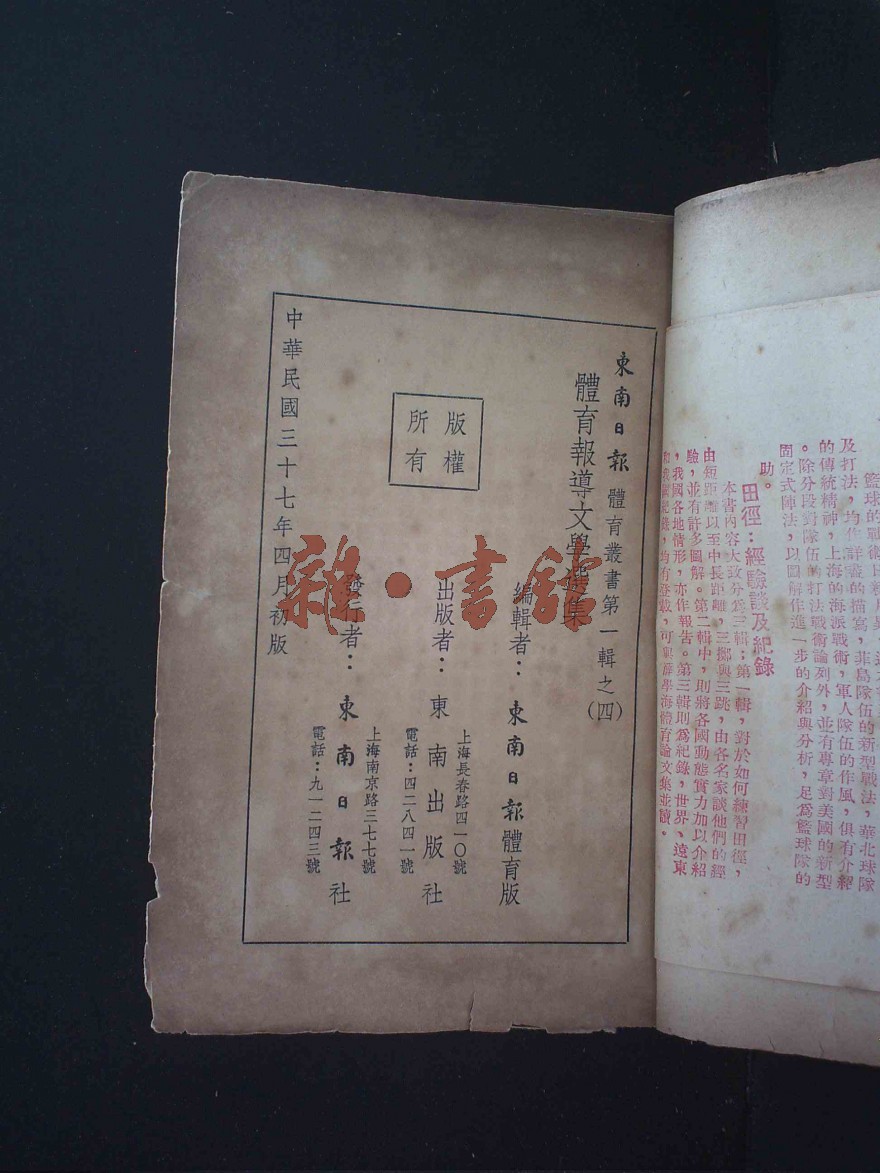 籃球的戰術
及打法，均作詳盡的描寫，菲島隊伍的新型戰法，華北球隊
的傳統精神，上海的海派戰術，軍人隊伍的作風，俱有介紹
。除分段對隊伍的打法戰術論列外，並有專章對美國的新型
固定式陣法，以圖解作進一步的介紹與分析，足爲籃球隊的
助。
田徑：經驗談及紀錄
本書內容大致分爲三輯：第一輯，對於如何練習田徑，
由短距離以至中長距離，三擲與三跳，由各名家談他們的經
驗，並有許多圖解。第二輯中，則將各國動態實力加以介紹
，我國各地情形，亦作報告。第三輯則爲紀錄，世界、遠東
均有登載，可與薛學海體育論文集並讀。
東南日報 體育叢書第一輯之（四）
體育報導文學選集
編輯者：東南日報體育版
上海長春路四一〇號
出版者：東南出版社
電話：四二八四一號
版權所有
上海南京路三七七號
發行者：東南日報社
電話：九一二四三號
中華民國三十七年四月初版
雜·書館